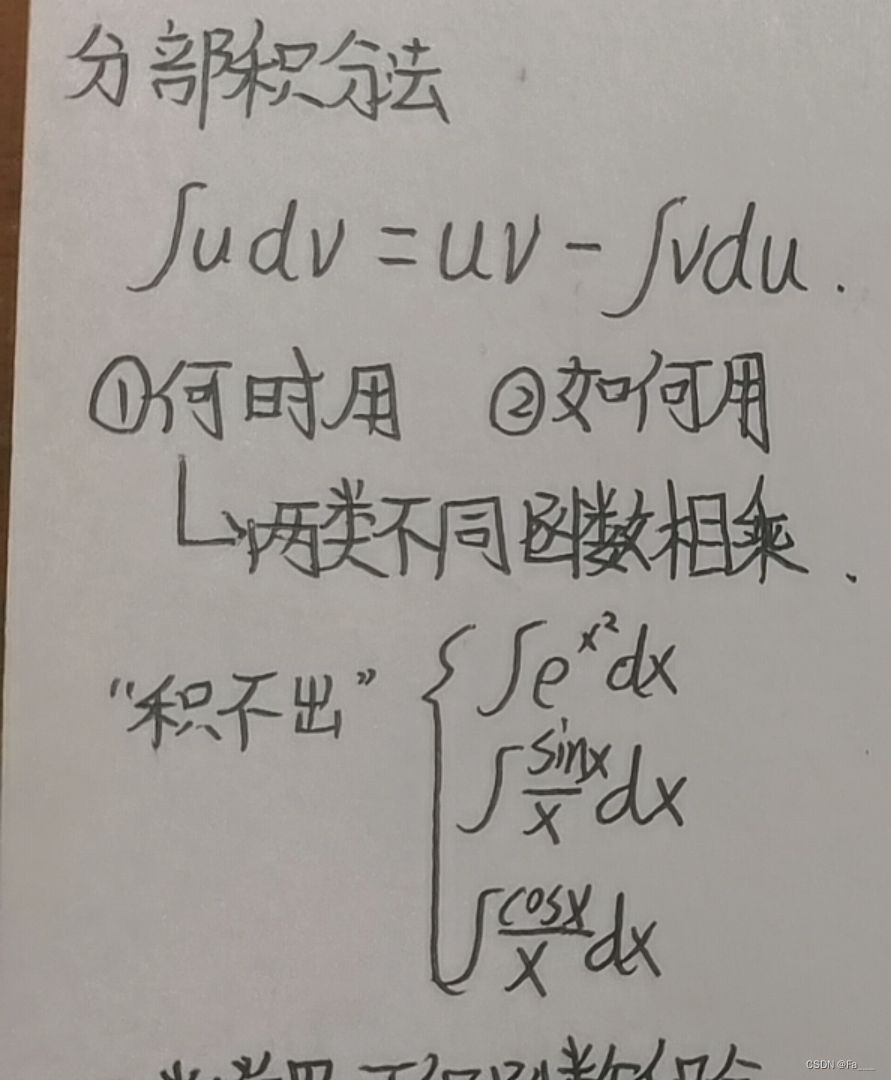 分部积分法
∫udv = uv - ∫vdu.
①何时用 ②如何用
↳两类不同函数相乘.
"积不出" { ∫e^{x^2}dx
∫\frac{sinx}{x}dx
∫\frac{cosx}{x}dx
CSDN @Fa__